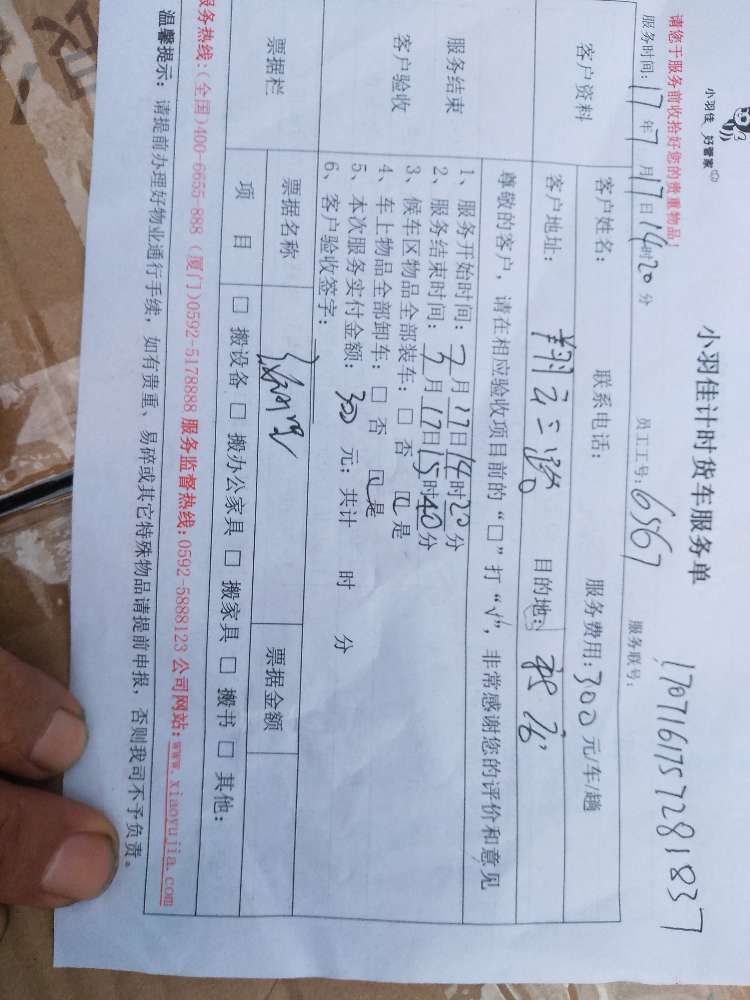 小羽佳 好管家
小羽佳计时货车服务单
请您于服务前收拾好您的贵重物品!
服务时间: 17 年 7 月 17 日 14 时 20 分 员工工号: 6567 服务联号: 1707161757281837
客户资料
客户姓名: 联系电话: 服务费用: 300 元/车/趟
客户地址: 翔云二路 目的地:
尊敬的客户,请在相应验收项目前的“□”打“√”,非常感谢您的评价和意见
服务结束
客户验收
1、服务开始时间: 7 月 17 日 14 时 20 分
2、服务结束时间: 7 月 17 日 15 时 40 分
3、候车区物品全部装车: □ 否 ☑ 是
4、车上物品全部卸车: □ 否 ☑ 是
5、本次服务实付金额: 300 元; 共计 时 分
6、客户验收签字:
票据栏
票据名称 票据金额
项 目 □ 搬设备 □ 搬办公家具 □ 搬家具 □ 搬书 □ 其他:
服务热线:(全国)400-6655-888 (厦门)0592-5178888 服务监督热线:0592-5888123 公司网站:www.xiaoyujia.com
温馨提示: 请提前办理好物业通行手续, 如有贵重、易碎或其它特殊物品请提前申报, 否则我司不予负责。